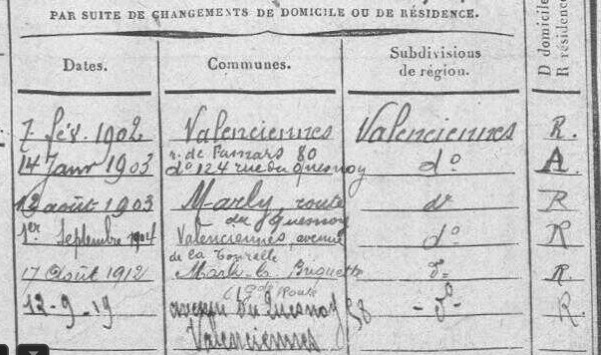 PAR SUITE DE CHANGEMENTS DE DOMICILE OU DE RÉSIDENCE.
Dates. Communes. Subdivisions de région. D domicile R résidence
7 fév. 1902 Valenciennes Valenciennes R.
r. de Famars 80
14 Janv 1903 d° 124 rue du Quesnoy d° A
12 août 1903 Marly, route d° R
du Quesnoy
1er Septembre 1904 Valenciennes, avenue d° R
de la Tourelle
17 Août 1912 Marly d° R.
route
12-9-19 du Quesnoy 58 - d° - R.
Valenciennes